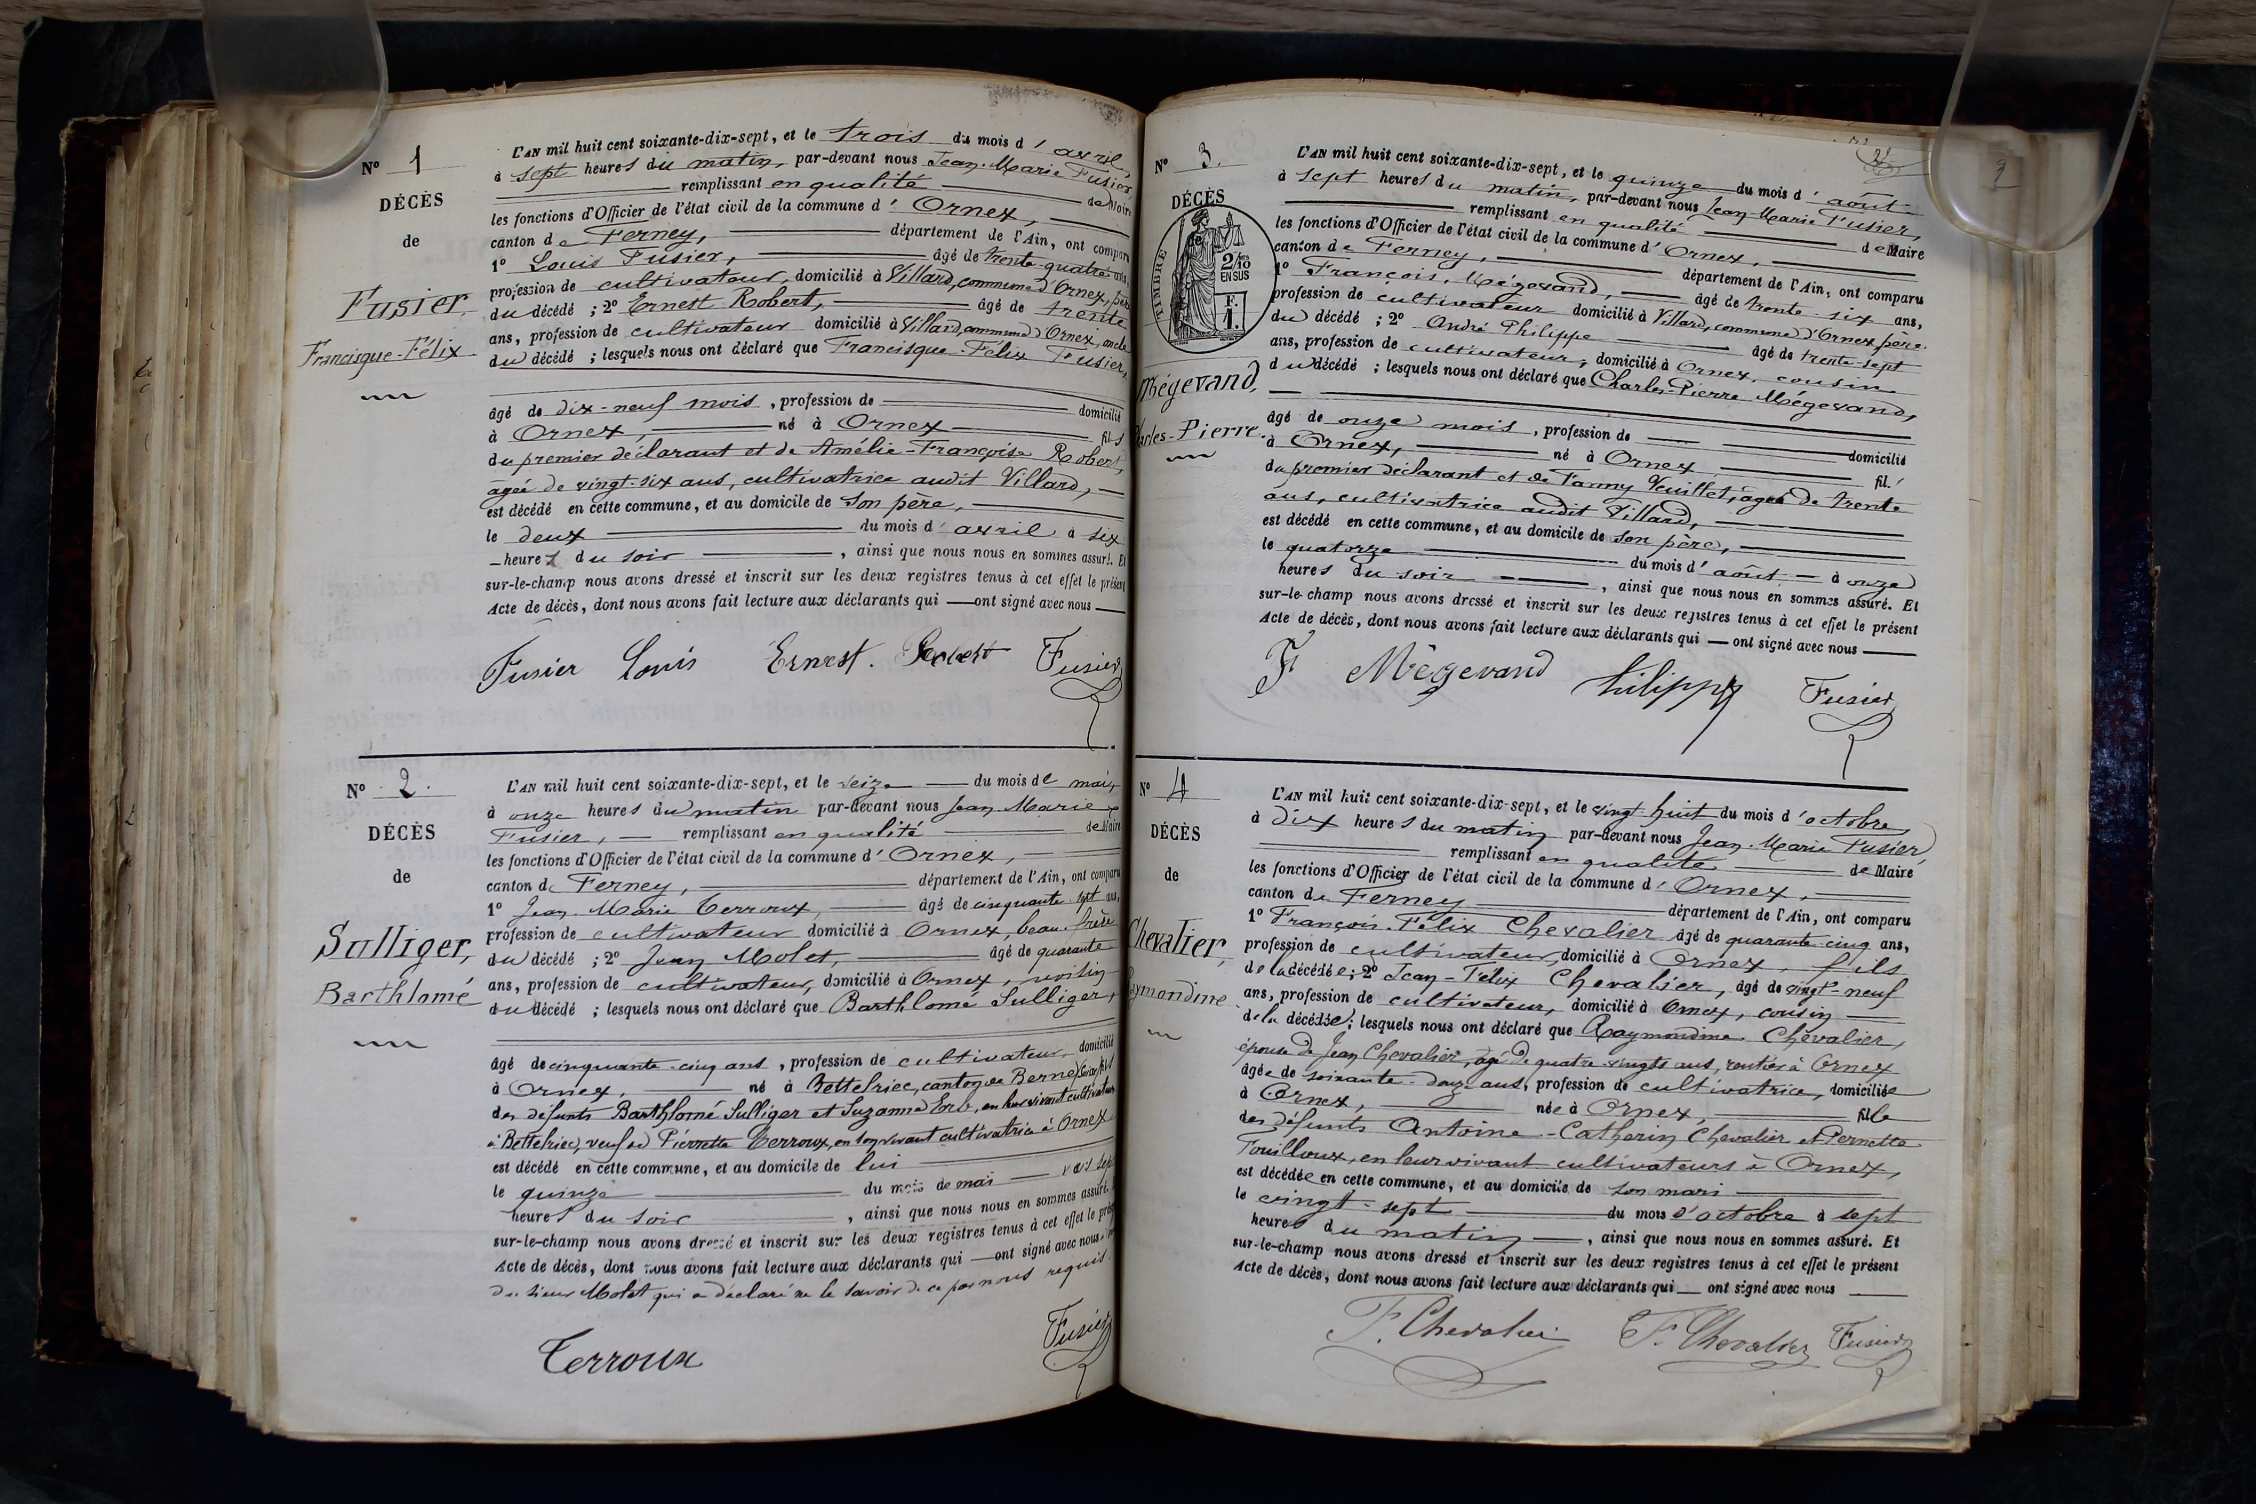 N° 1
DÉCÈS
de
Fusier
Francisque-Félix
L'AN mil huit cent soixante-dix-sept, et le trois du mois d'avril,
à sept heures du matin, par-devant nous Jean-Marie Fusier
remplissant en qualité de Maire
les fonctions d'Officier de l'état civil de la commune d'Ornex,
canton de Ferney, département de l'Ain, ont comparu
1° Louis Fusier, âgé de trente-quatre ans,
profession de cultivateur, domicilié à Villard, commune d'Ornex, père
du décédé ; 2° Ernest Robert, âgé de trente
ans, profession de cultivateur domicilié à Villard, commune d'Ornex, oncle
du décédé ; lesquels nous ont déclaré que Francisque-Félix Fusier,
âgé de dix-neuf mois, profession de domicilié
à Ornex, né à Ornex fils
du premier déclarant et de Amélie-Françoise Robert,
agée de vingt-six ans, cultivatrice audit Villard,
est décédé en cette commune, et au domicile de son père,
le deux du mois d'avril à six
heures du soir, ainsi que nous nous en sommes assuré. Et
sur-le-champ nous avons dressé et inscrit sur les deux registres tenus à cet effet le présent
Acte de décès, dont nous avons fait lecture aux déclarants qui ont signé avec nous
Fusier Louis Ernest. Robert Fusier
N° 2.
DÉCÈS
de
Sulliger,
Barthlomé
L'AN mil huit cent soixante-dix-sept, et le seize du mois de mai,
à onze heures du matin par-devant nous Jean-Marie
Fusier, remplissant en qualité de Maire
les fonctions d'Officier de l'état civil de la commune d'Ornex,
canton de Ferney, département de l'Ain, ont comparu
1° Jean-Marie Terroux, âgé de cinquante sept ans,
profession de cultivateur domicilié à Ornex, beau-frère
du décédé ; 2° Jean Molet, âgé de quarante
ans, profession de cultivateur, domicilié à Ornex, voisin
du décédé ; lesquels nous ont déclaré que Barthlomé Sulliger,
âgé de cinquante-cinq ans, profession de cultivateur, domicilié
à Ornex, né à Bettelriec, canton de Berne (Suisse) fils
des défunts Barthlomé Sulliger et Suzanne Erb, en leur vivant cultivateurs
à Bettelriec, veuf de Pierrette Terroux, en son vivant cultivatrice à Ornex
est décédé en cette commune, et au domicile de lui
le quinze du mois de mai vers sept
heures du soir, ainsi que nous nous en sommes assuré.
sur-le-champ nous avons dressé et inscrit sur les deux registres tenus à cet effet le présent
Acte de décès, dont nous avons fait lecture aux déclarants qui ont signé avec nous
du sieur Molet qui a déclaré ne le savoir de ce par nous requis.
Terroux Fusier
N° 3.
DÉCÈS
de
TIMBRE
2/10
EN SUS
F.
1.
Mégevand,
Charles-Pierre.
L'AN mil huit cent soixante-dix-sept, et le quinze du mois d'août
à sept heures du matin, par-devant nous Jean-Marie Fusier,
remplissant en qualité de Maire
les fonctions d'Officier de l'état civil de la commune d'Ornex,
canton de Ferney, département de l'Ain, ont comparu
1° François Mégevand, âgé de trente-six ans,
profession de cultivateur domicilié à Villard, commune d'Ornex père.
du décédé ; 2° André Philippe âgé de trente-sept
ans, profession de cultivateur, domicilié à Ornex, cousin
du décédé ; lesquels nous ont déclaré que Charles-Pierre Mégevand,
âgé de onze mois, profession de domicilié
à Ornex, né à Ornex fils
du premier déclarant et de Fanny Veuillet, agée de trente
ans, cultivatrice audit Villard,
est décédé en cette commune, et au domicile de son père,
le quatorze du mois d'août à onze
heures du soir, ainsi que nous nous en sommes assuré. Et
sur-le-champ nous avons dressé et inscrit sur les deux registres tenus à cet effet le présent
Acte de décès, dont nous avons fait lecture aux déclarants qui ont signé avec nous
F Mègevand Philippe Fusier
N° 4
DÉCÈS
de
Chevalier,
Raymondine.
L'AN mil huit cent soixante-dix-sept, et le vingt-huit du mois d'octobre
à dix heures du matin par-devant nous Jean-Marie Fusier,
remplissant en qualité de Maire
les fonctions d'Officier de l'état civil de la commune d'Ornex,
canton de Ferney département de l'Ain, ont comparu
1° François-Félix Chevalier âgé de quarante-cinq ans,
profession de cultivateur, domicilié à Ornex, fils
de la décédée; 2° Jean-Félix Chevalier, âgé de vingt-neuf
ans, profession de cultivateur, domicilié à Ornex, cousin
de la décédée; lesquels nous ont déclaré que Raymondine Chevalier,
épouse de Jean Chevalier, agé de quatre-vingts ans, rentier à Ornex
âgée de soixante-douze ans, profession de cultivatrice, domiciliée
à Ornex, née à Ornex, fille
des défunts Antoine-Catherin Chevalier et Pernette
Fouilloux, en leur vivant cultivateurs à Ornex,
est décédée en cette commune, et au domicile de son mari
le vingt-sept du mois d'octobre à sept
heures du matin, ainsi que nous nous en sommes assuré. Et
sur-le-champ nous avons dressé et inscrit sur les deux registres tenus à cet effet le présent
Acte de décès, dont nous avons fait lecture aux déclarants qui ont signé avec nous
F. Chevalier F. Chevalier Fusier